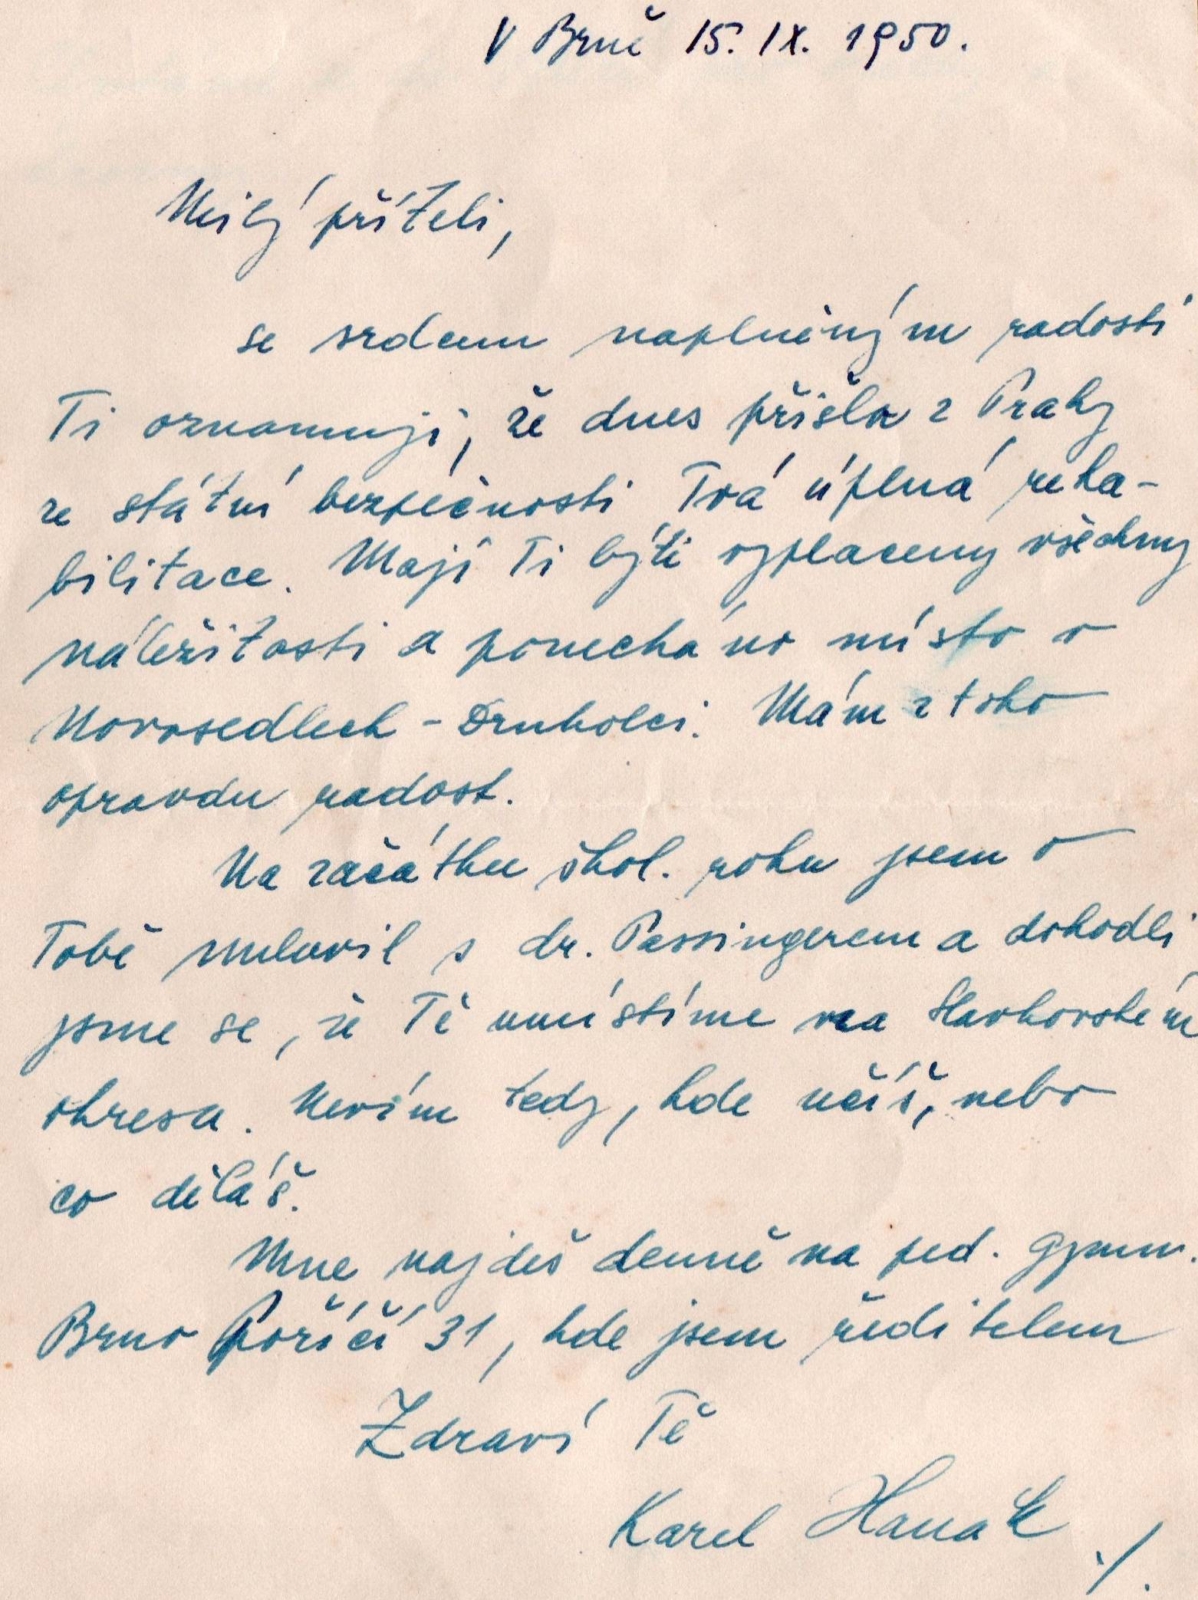 V Brně 15. IX. 1950.
Milý příteli,
se srdcem naplněným radostí
Ti oznamuji, že dnes přišla z Prahy
ze státní bezpečnosti Tvá úplná reha-
bilitace. Mají Ti býti vyplaceny všechny
náležitosti a ponecháno místo v
Novosedlech - Drnholci. Mám z toho
opravdu radost.
Na začátku škol. roku jsem o
Tobě mluvil s dr. Passingerem a dohodli
jsme se, že Tě umístíme na Slavkovském
okresu. Nevím tedy, kde učíš, nebo
co děláš.
Mne najdeš denně na ped. gymn.
Brno Poříčí 31, kde jsem ředitelem
Zdraví Tě
Karel Hanák
./.